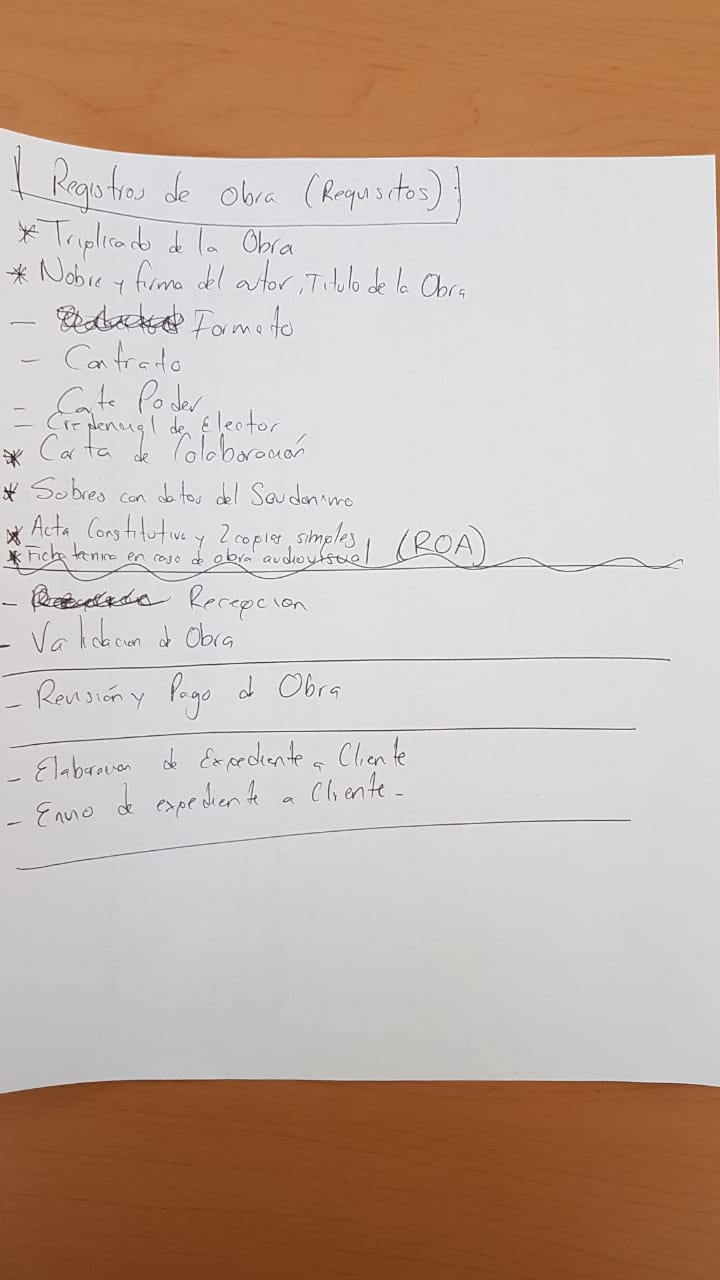 Registros de Obra (Requisitos)
* Triplicado de la Obra
* Nobre y firma del autor, Titulo de la Obra
- Formato
- Contrato
- Cate Poder
= Credencial de Elector
* Carta de Colaboración
* Sobres con datos del Seudonimo
* Acta Constitutiva y 2 copias simples
* Ficha tecnica en caso de obra audiovisual (ROA)
- Recepcion
- Validacion d Obra
- Revisión y Pago d Obra
- Elaboracion de Expediente a Cliente
- Envio de expediente a Cliente -